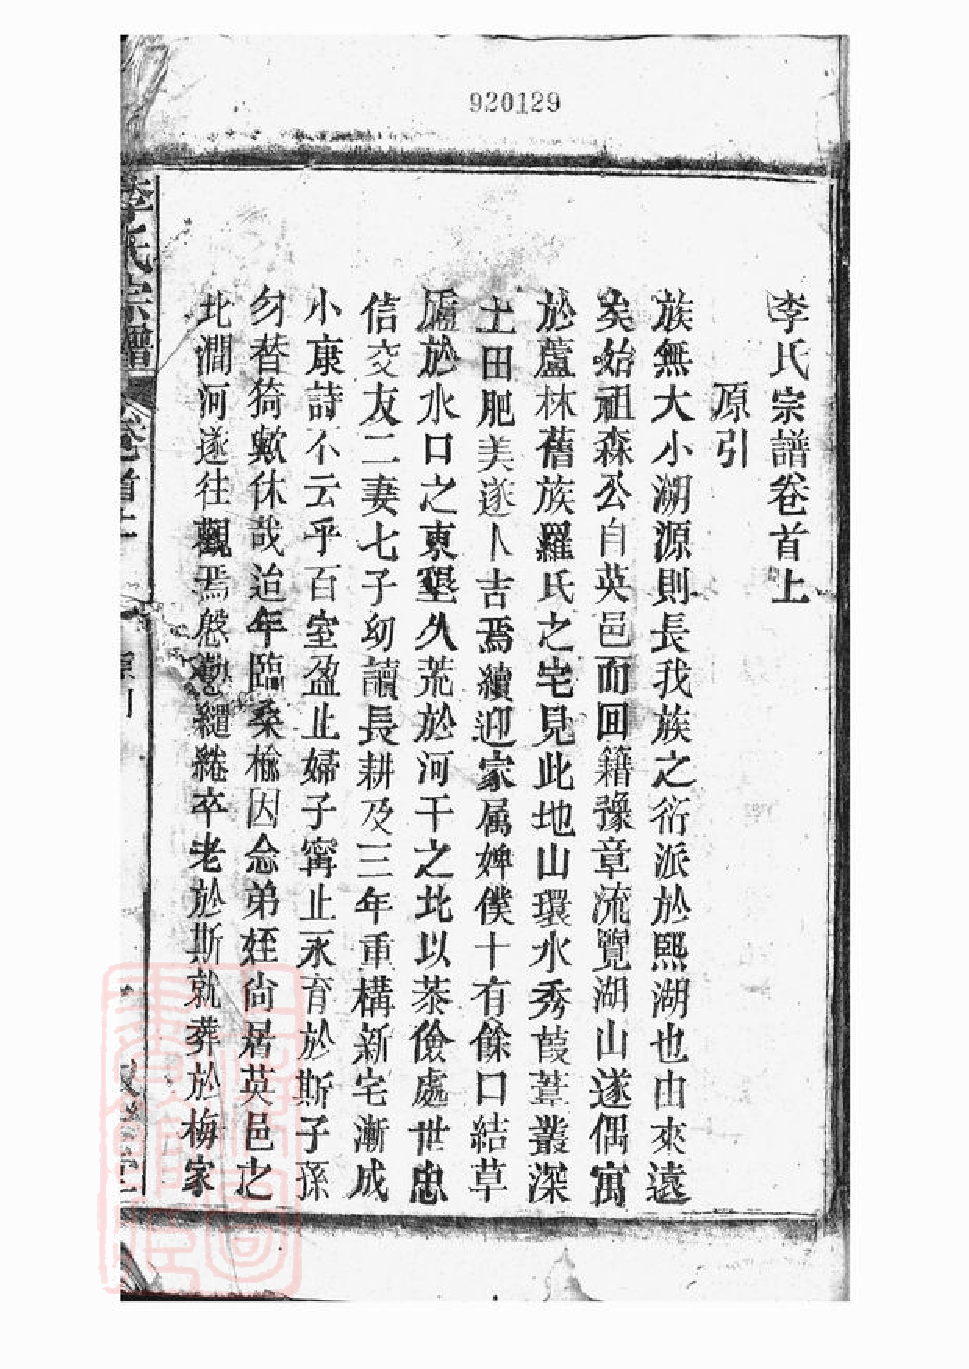 920129
李氏宗譜卷首上
原引
族無大小溯源則長我族之衍派於熙湖也由來遠
矣始祖森公自英邑而回籍豫章流覽湖山遂偶寓
於蘆林舊族羅氏之宅見此地山環水秀葭葦叢深
土田肥美遂卜吉焉續迎家属婢僕十有餘口結草
廬於水口之東墾久荒於河干之北以恭儉處世忠
信交友二妻七子幼讀長耕及三年重構新宅漸成
小康詩不云乎百室盈止婦子寧止永育於斯子孫
勿替猗歟休哉迨年臨桑榆因念弟姪尚居英邑之
北澗河遂往觀焉慇懃繾綣卒老於斯就葬於梅家
李氏宗譜
卷首上
原引